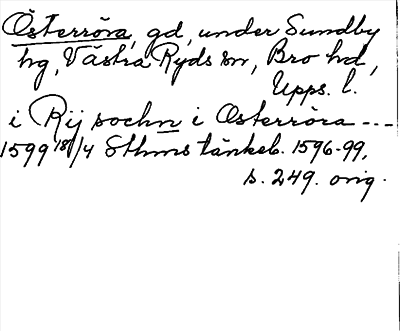 Österröra, gd, under Sundby
hg, Västra Ryds sn, Bro hd,
Upps. l.
i Rij sochn i Osterröra ----
1599 18/4 Sthms tänkeb. 1596-99,
s. 249. orig.